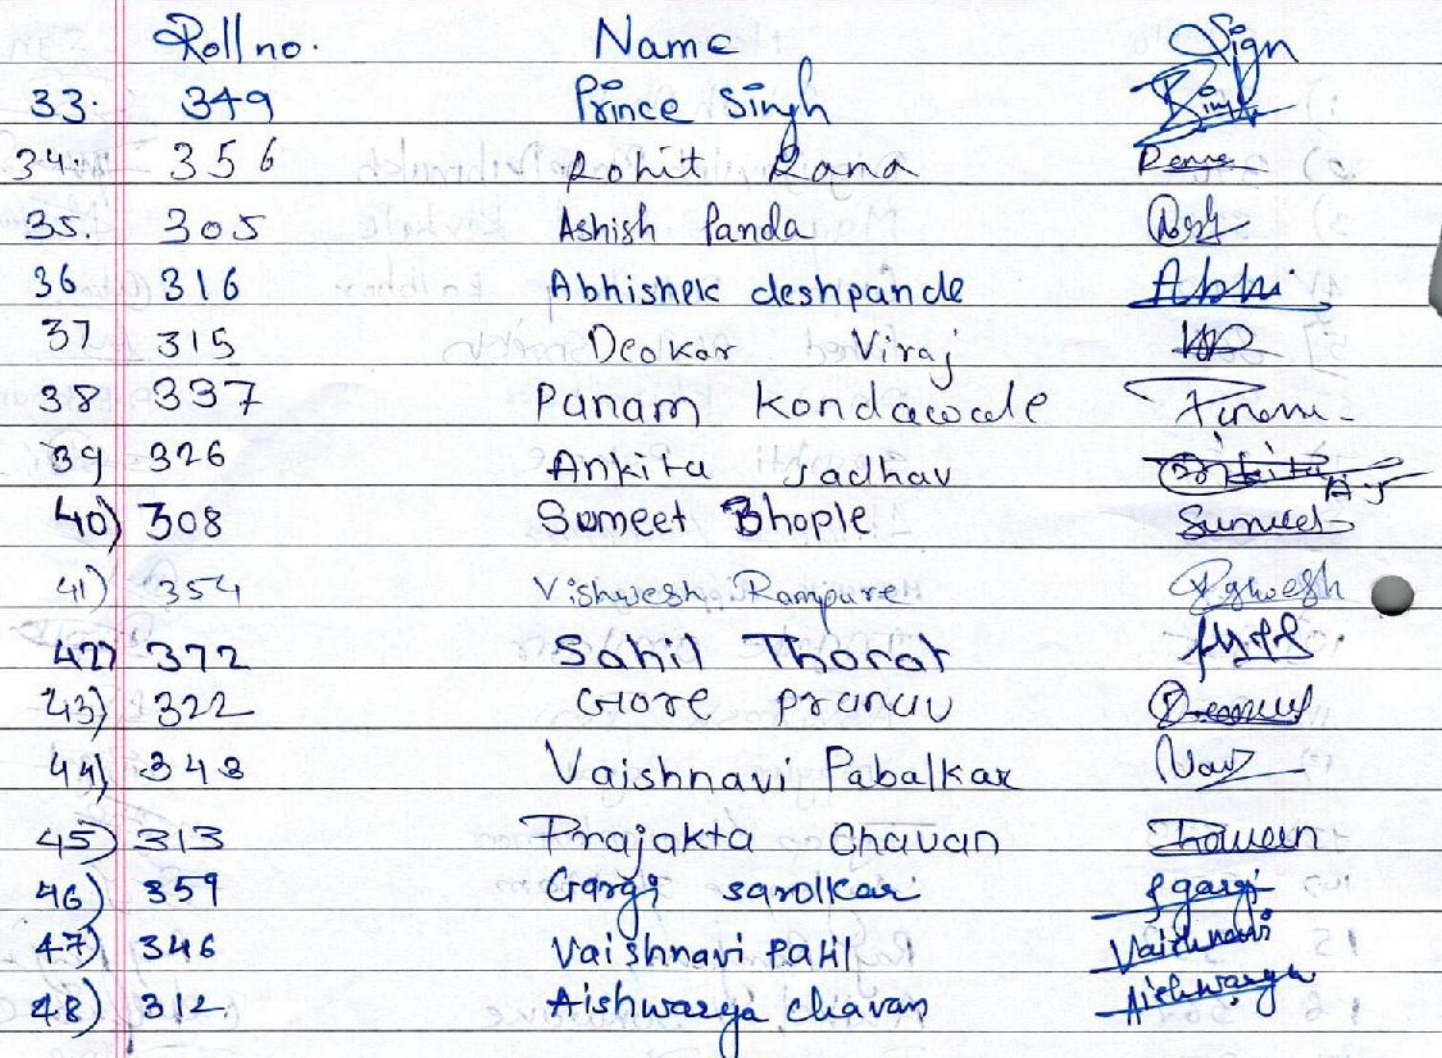 Roll no. Name Sign
33. 349 Prince Singh Singh
34. 356 Rohit Rana Rana
35. 305 Ashish Panda
36 316 Abhishek deshpande Abhi
37 315 Deokar Viraj
38 337 Panam kondawale
39 326 Ankita Jadhav A.J
40) 308 Sumeet Bhople Sumeet
41) 354 Vishwesh Rampure
42) 372 Sahil Thorat
43) 322 Gore Pranav
44) 343 Vaishnavi Pabalkar
45) 313 Prajakta Chavan
46) 359 Gargi sarolkar gargi
47) 346 Vaishnavi Patil Vaishnavi
48) 312 Aishwarya Chavan Aishwarya